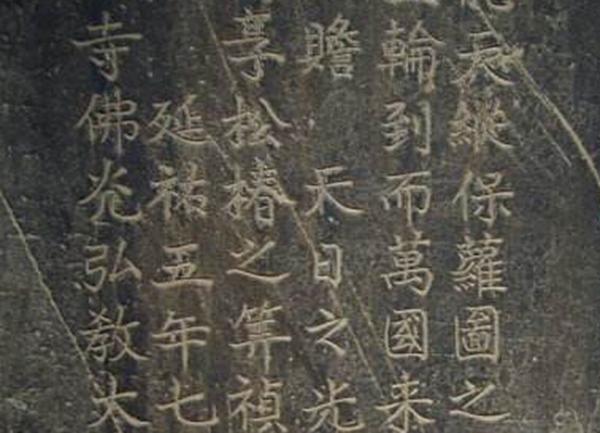 縱保蘿圖之
輪到而萬國来
瞻 天日之光
享松椿之筭禎
延祐五年七
寺佛光弘教大